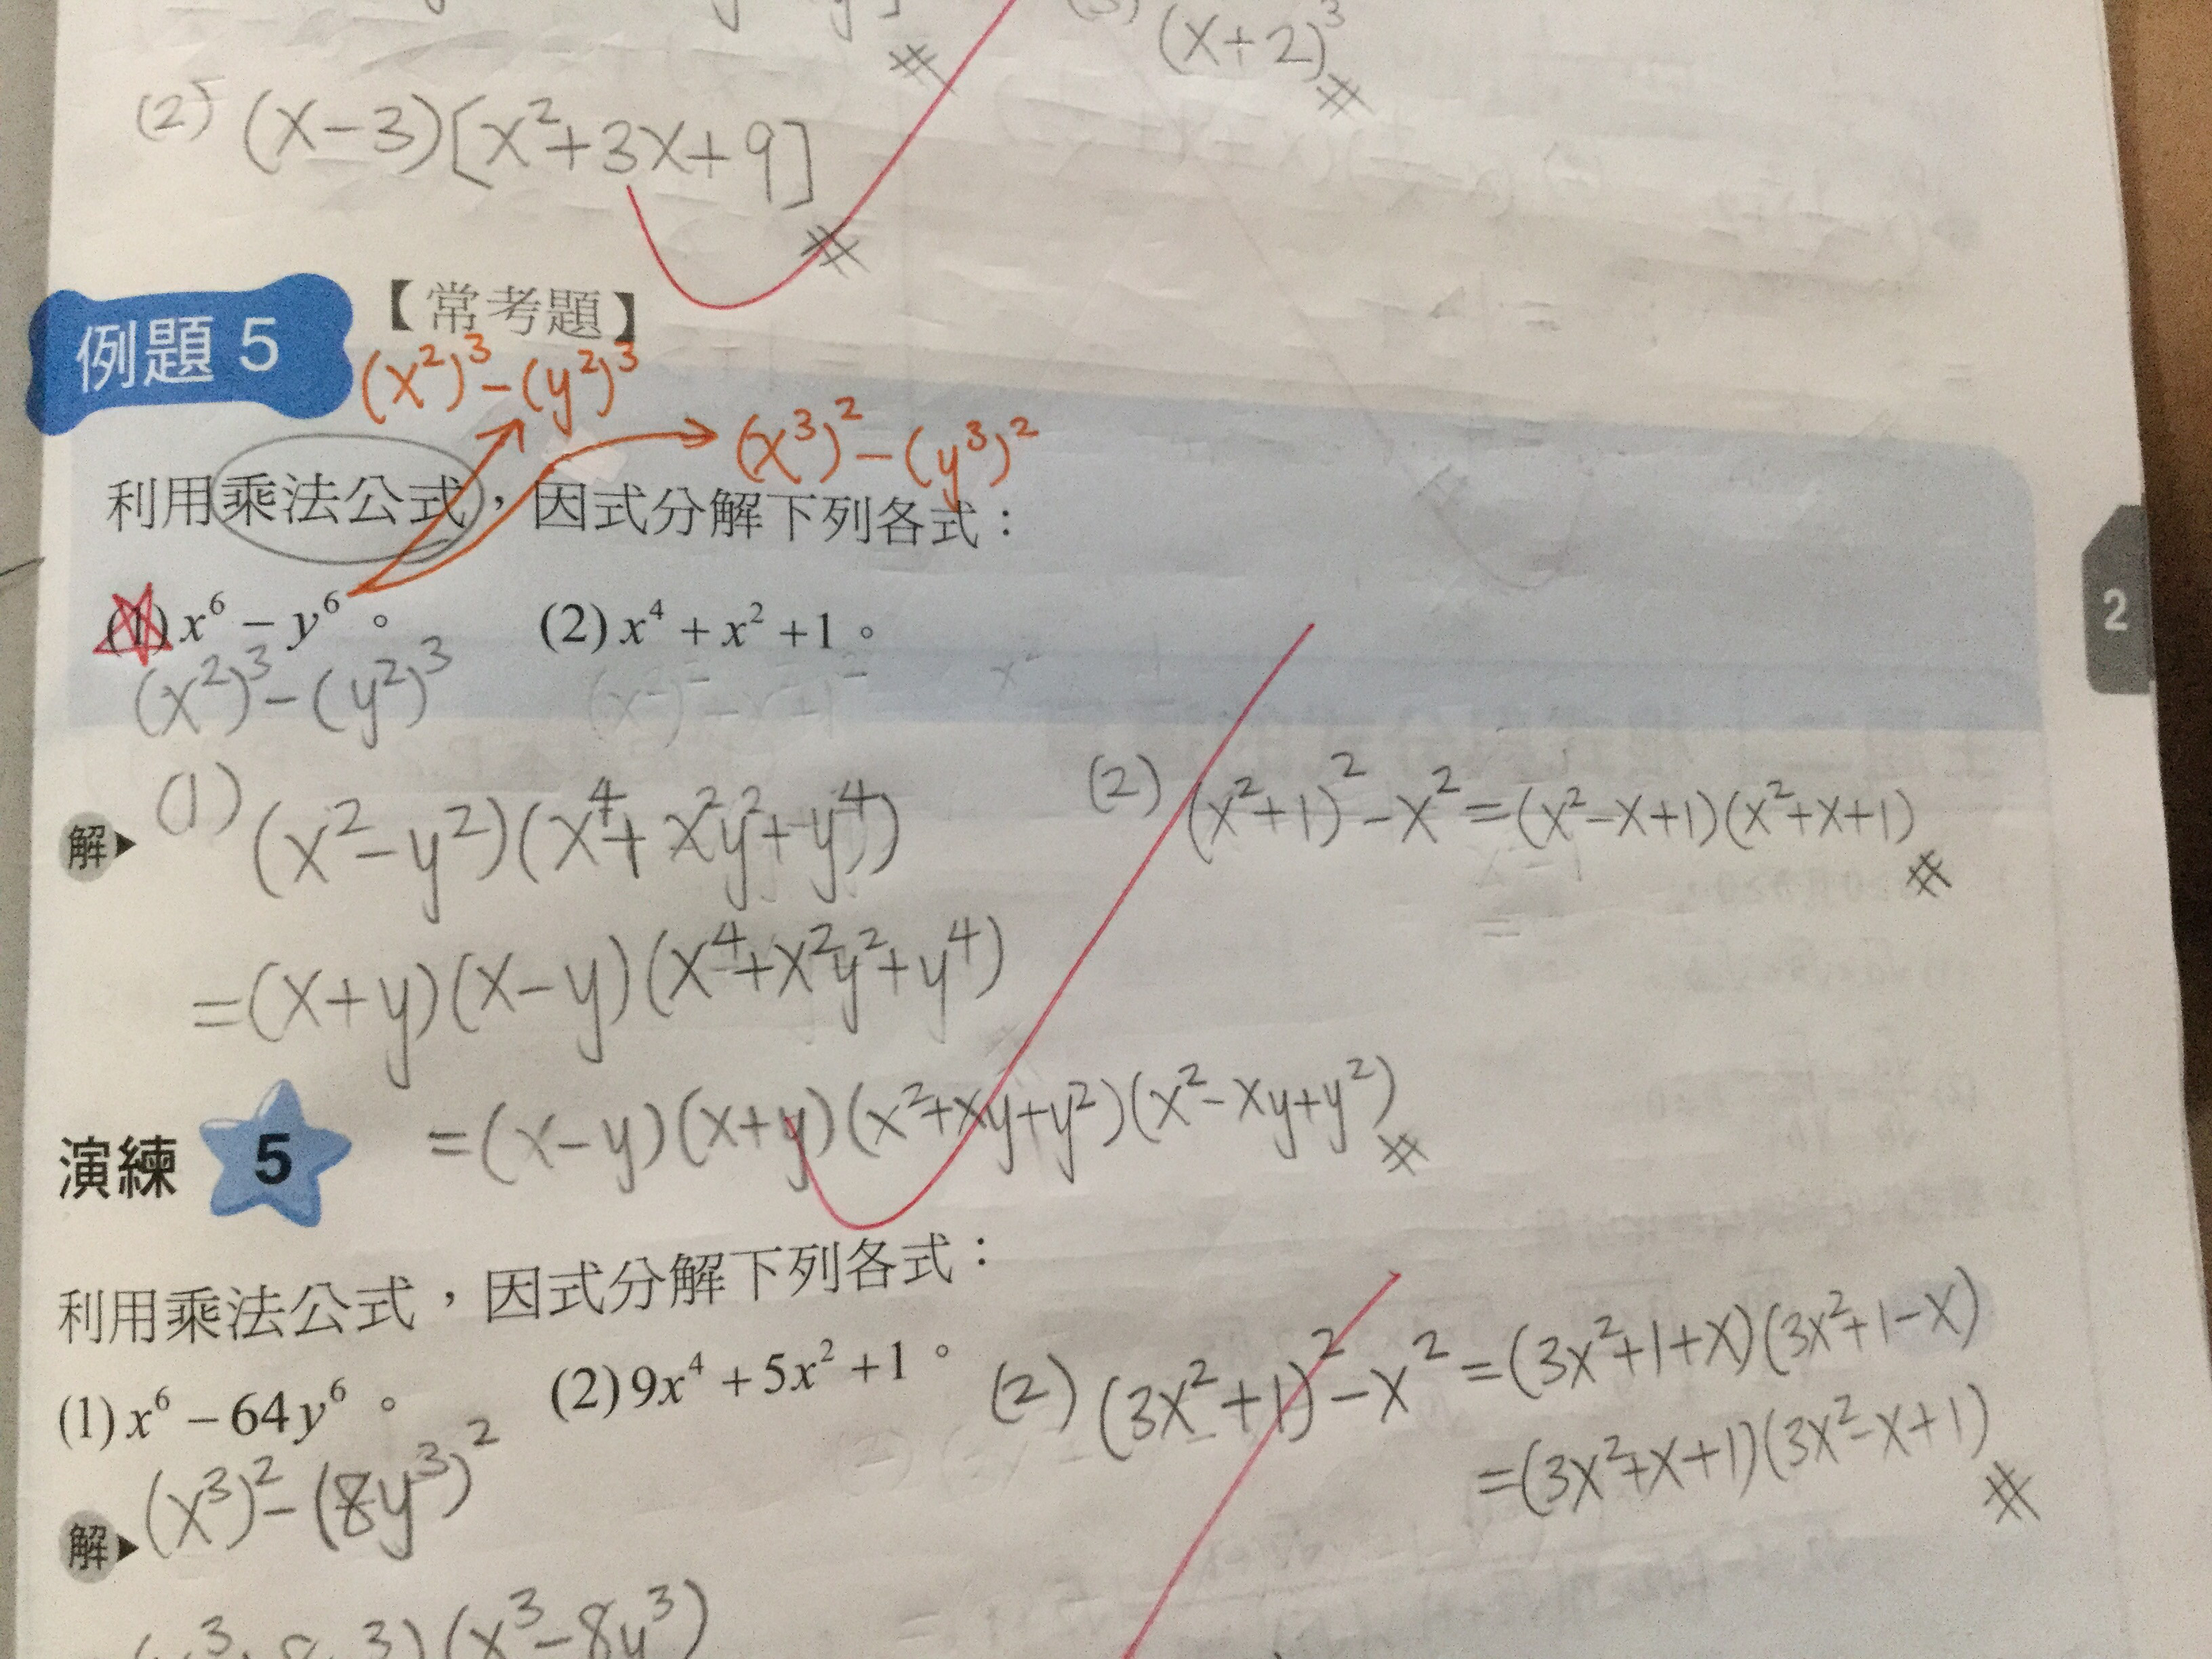 (x+2)³
#
#
(2) (x-3)[x²+3x+9]
#
例題 5 【常考題】
(x²)³-(y²)³
(x³)²-(y³)²
利用乘法公式，因式分解下列各式：
(1) x⁶ - y⁶。 (2) x⁴ + x² + 1。
(x²)³-(y²)³
解▶ (1) (x²-y²)(x⁴+x²y²+y⁴)
=(x+y)(x-y)(x⁴+x²y²+y⁴)
=(x-y)(x+y)(x²+xy+y²)(x²-xy+y²)#
(2) (x²+1)²-x²=(x²-x+1)(x²+x+1)#
2
演練 5
利用乘法公式，因式分解下列各式：
(1) x⁶ - 64y⁶。 (2) 9x⁴ + 5x² + 1。
解▶ (x³)²-(8y³)²
(x³-8y³)
(2) (3x²+1)²-x²=(3x²+1+x)(3x²+1-x)
=(3x²+x+1)(3x²-x+1)#